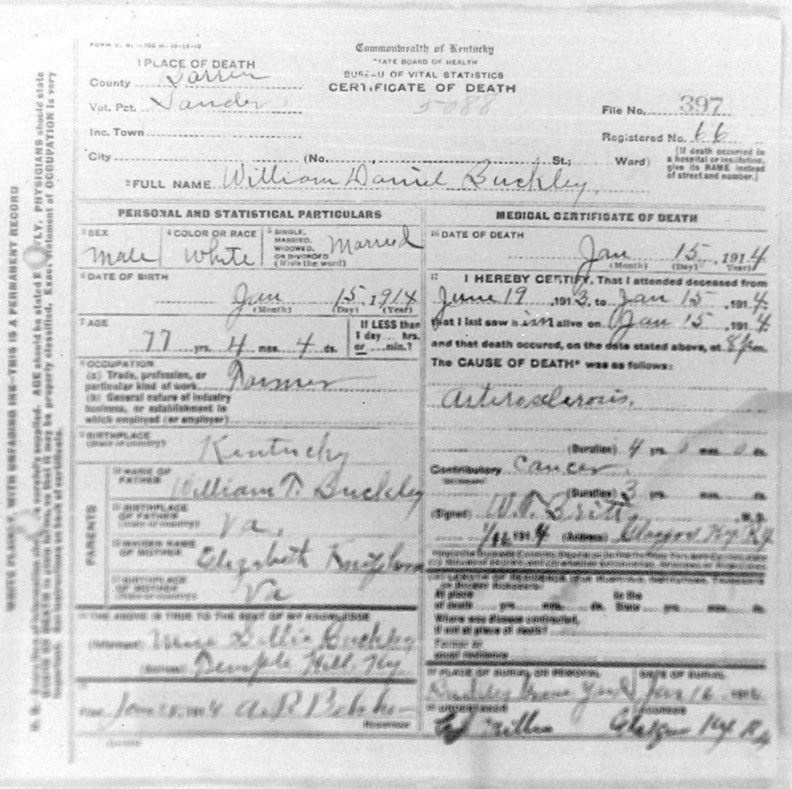 Commonwealth of Kentucky
STATE BOARD OF HEALTH
BUREAU OF VITAL STATISTICS
CERTIFICATE OF DEATH
5088
1 PLACE OF DEATH
County Barren
Vot. Pct.
Inc. Town
City (No. St.; Ward)
File No. 397
Registered No. 66
[If death occurred in a hospital or institution, give its NAME instead of street and number.]
2 FULL NAME William Daniel Buckley
PERSONAL AND STATISTICAL PARTICULARS
3 SEX Male
4 COLOR OR RACE White
5 SINGLE, MARRIED, WIDOWED, OR DIVORCED (Write the word) Married
6 DATE OF BIRTH
Jan 15, 1914
(Month) (Day) (Year)
7 AGE
77 yrs. 4 mos. 4 ds.
If LESS than 1 day... hrs. or ... min.?
8 OCCUPATION
(a) Trade, profession, or particular kind of work Farmer
(b) General nature of industry business, or establishment in which employed (or employer)
9 BIRTHPLACE
(State or country) Kentucky
PARENTS
10 NAME OF FATHER William T. Buckley
11 BIRTHPLACE OF FATHER (State or country) Va.
12 MAIDEN NAME OF MOTHER Elizabeth
13 BIRTHPLACE OF MOTHER (State or country) Va
14 THE ABOVE IS TRUE TO THE BEST OF MY KNOWLEDGE
(Informant) Miss Buckley
(Address) Temple Hill, Ky
15
Filed 1914
MEDICAL CERTIFICATE OF DEATH
16 DATE OF DEATH
Jan 15, 1914
(Month) (Day) (Year)
17 I HEREBY CERTIFY, That I attended deceased from
June 19, 1913, to Jan 15, 1914
that I last saw him alive on Jan 15, 1914
and that death occured, on the date stated above, at 8 p.m.
The CAUSE OF DEATH* was as follows:
Arterosclerosis.
(Duration) 4 yrs. 0 mos. 0 ds.
Contributory Cancer
(Duration) 3 yrs. mos. ds.
(Signed) W. T. Britt, M.D.
1914 (Address) Glasgow Ky
At place of death yrs. mos. ds. In the State yrs. mos. ds.
Where was disease contracted, if not at place of death?
Former or usual residence
19 PLACE OF BURIAL OR REMOVAL
Buckley Grave Yard
DATE OF BURIAL
Jan 16 1914
20 UNDERTAKER
ADDRESS
Glasgow Ky
WRITE PLAINLY, WITH UNFADING INK—THIS IS A PERMANENT RECORD